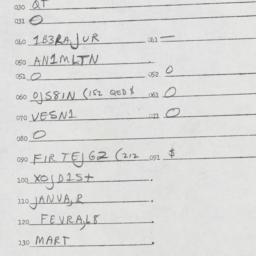 030 QT
031 O
040 1B3RAJUR 041 —
050 AN1MLTN
051 O 052 O
060 OJS8IN (152 QED$ 061 O
070 VESN1 073 O
080 O
090 FIRTEJGZ (212 091 $
100 XOJD1S+
110 JANVA,R
120 FEVRA,L8
130 MART